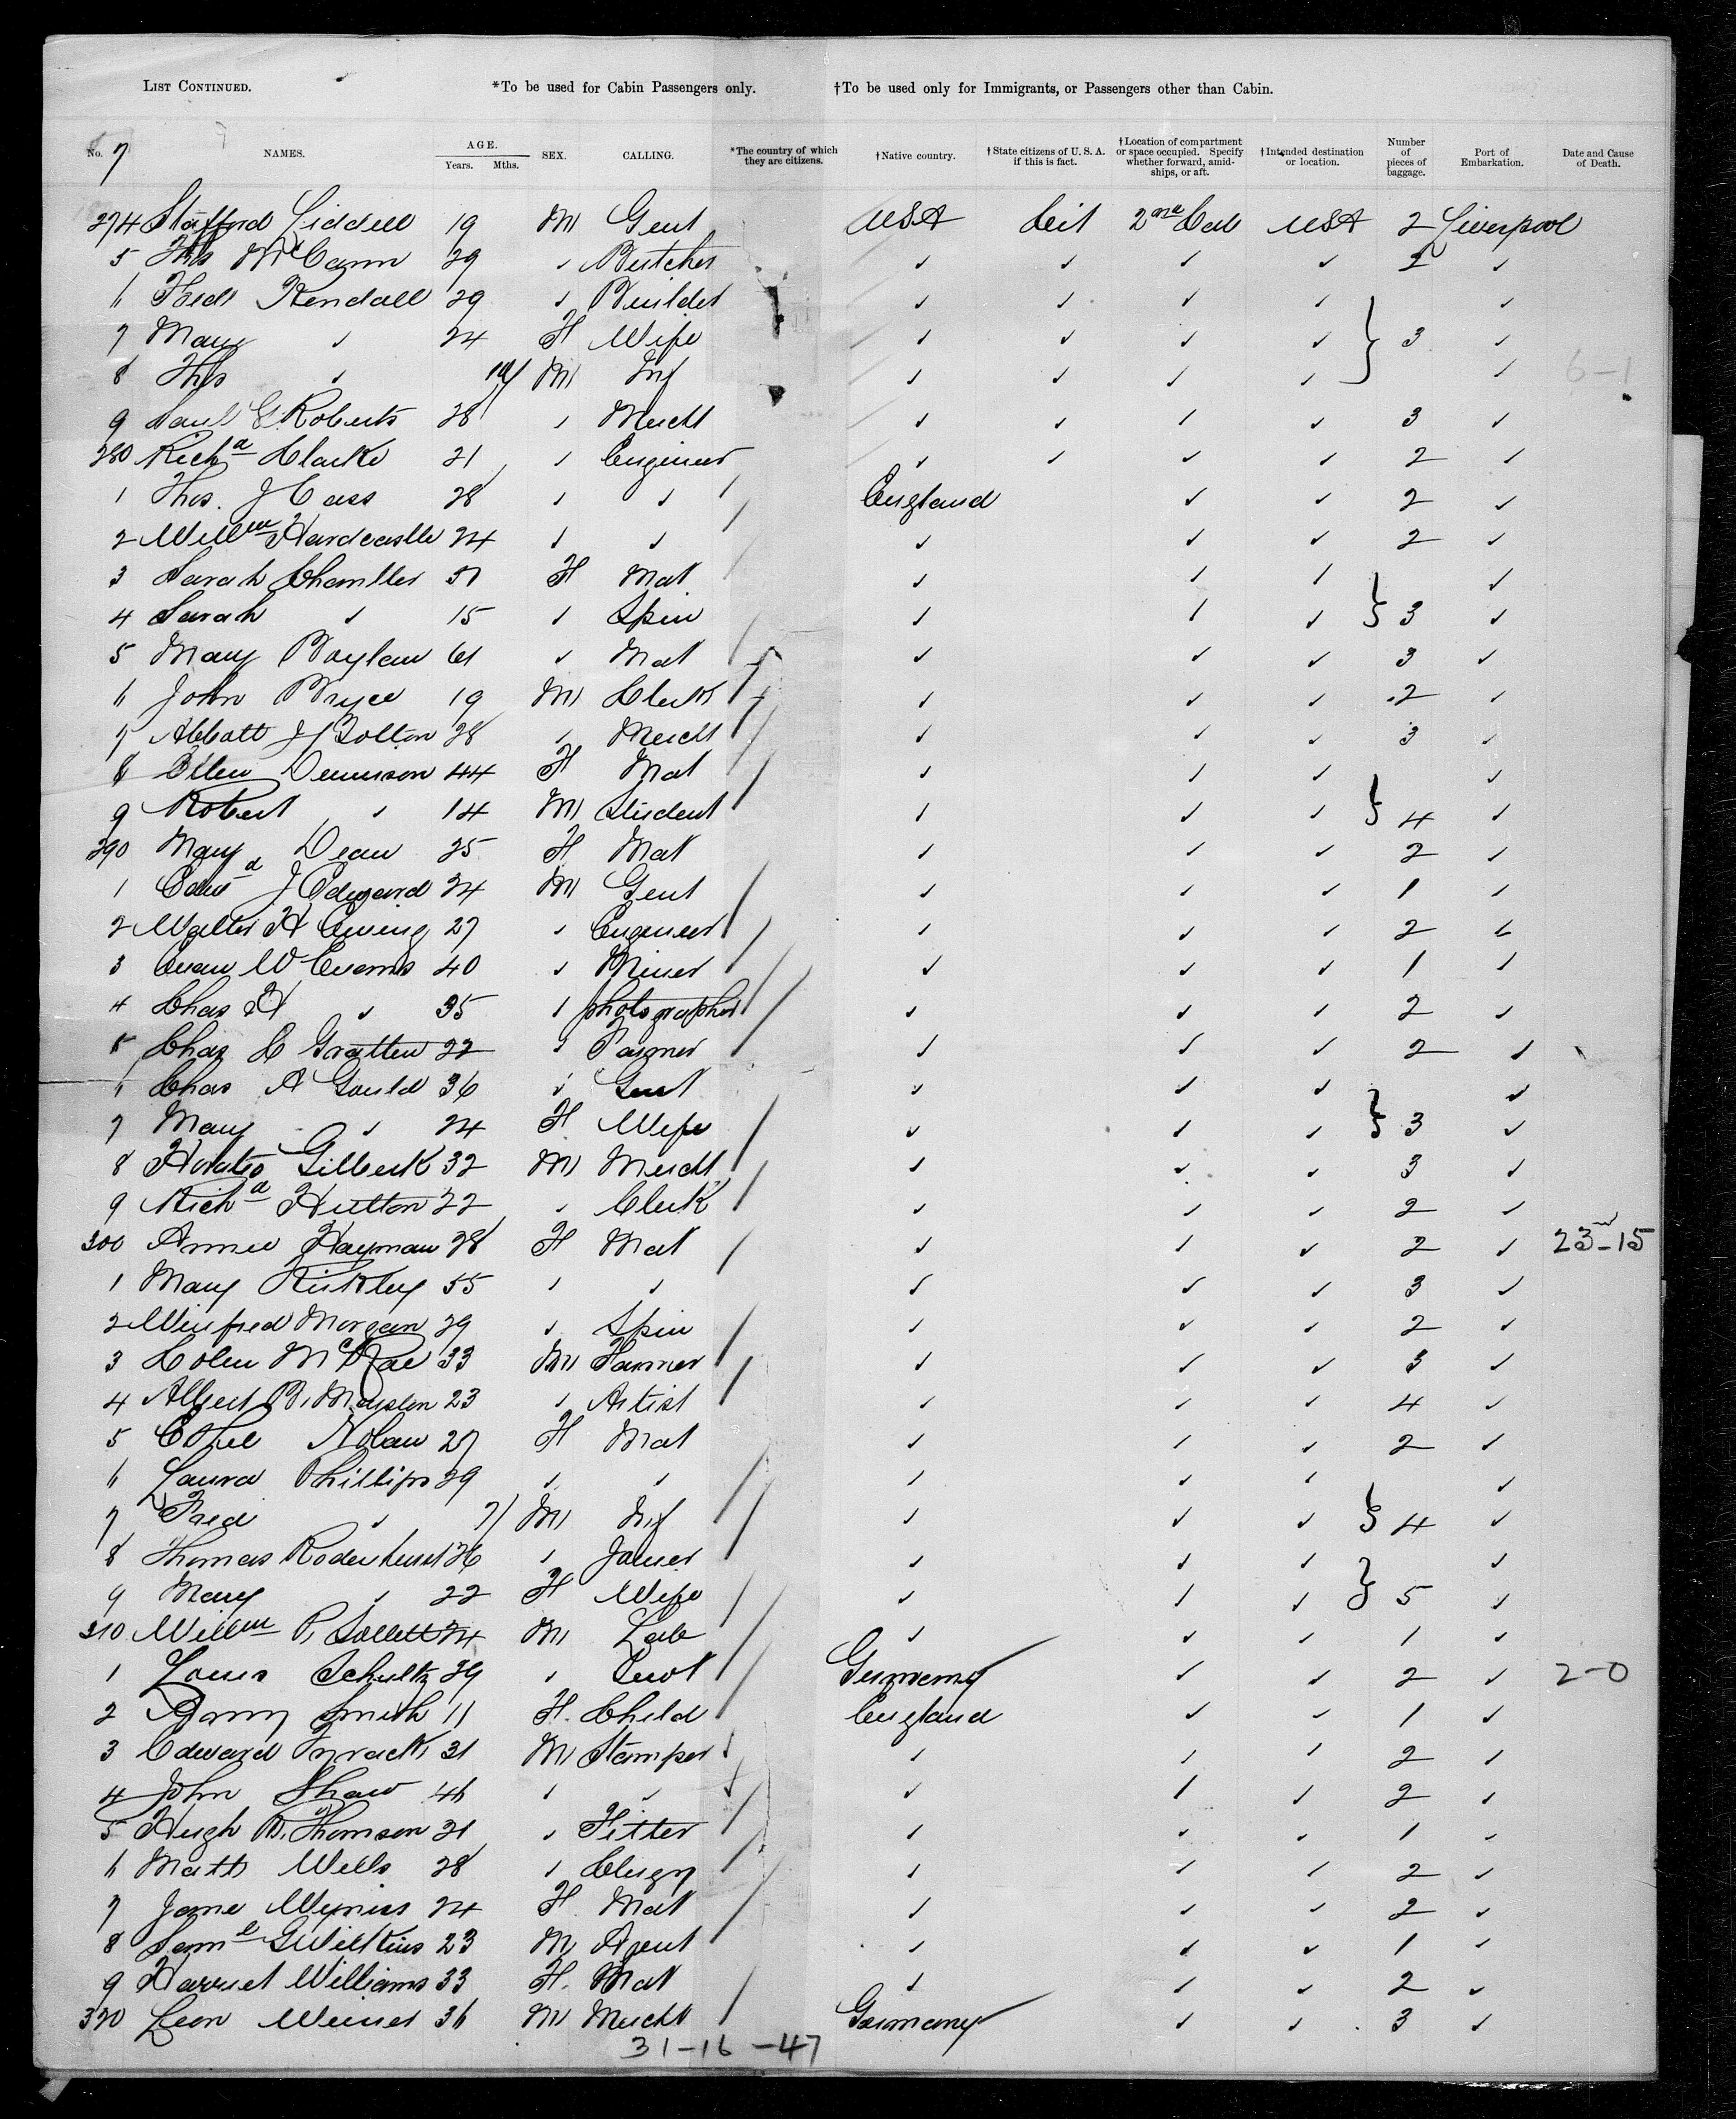 LIST CONTINUED. *To be used for Cabin Passengers only. †To be used only for Immigrants, or Passengers other than Cabin.
No. 7 NAMES. AGE. Years. Mths. SEX. CALLING. *The country of which they are citizens. †Native country. †State citizens of U. S. A. if this is fact. †Location of compartment or space occupied. Specify whether forward, amid-ships, or aft. †Intended destination or location. Number of pieces of baggage. Port of Embarkation. Date and Cause of Death.
274 Stafford Liddell 19 M Gent USA Cit 2nd Cab USA 2 Liverpool
5 Thos McCann 29 ✓ Butcher ✓ ✓ ✓ ✓ 2 ✓
6 Fredk Kendall 29 ✓ Builder ✓ ✓ ✓ ✓ ✓
7 Mary ✓ 24 F Wife ✓ ✓ ✓ ✓ } 3 ✓
8 Thos ✓ M Inf ✓ ✓ ✓ ✓ ✓ 6-1
9 Saul G Roberts 28 ✓ Mercht ✓ ✓ ✓ ✓ 3 ✓
280 Richd Clarke 21 ✓ Engineer ✓ ✓ ✓ ✓ 2 ✓
1 Thos. J Cass 28 ✓ ✓ England ✓ ✓ 2 ✓
2 Willm Hardcastle 24 ✓ ✓ ✓ ✓ ✓ 2 ✓
3 Sarah Chantler 51 F Mat ✓ ✓ ✓ ✓
4 Sarah ✓ 15 ✓ Spin ✓ ✓ ✓ } 3 ✓
5 Mary Boylan 61 ✓ Mat ✓ ✓ ✓ 3 ✓
6 John Bryce 19 M Clerk ✓ ✓ ✓ 2 ✓
7 Abbott J Bolton 28 ✓ Mercht ✓ ✓ ✓ 3 ✓
8 Ellen Dennison 44 F Mat ✓ ✓ ✓ ✓
9 Robert ✓ 14 M Student ✓ ✓ ✓ } 4 ✓
290 Mary Dean 25 F Mat ✓ ✓ ✓ 2 ✓
1 Edwd J Edward 24 M Gent ✓ ✓ ✓ 1 ✓
2 Walter H Ewing 27 ✓ Engineer ✓ ✓ ✓ 2 ✓
3 Evan W Evans 40 ✓ Miner ✓ ✓ ✓ 1 ✓
4 Chas H ✓ 35 ✓ photographer ✓ ✓ ✓ 2 ✓
5 Chas C Gratten 22 ✓ Farmer ✓ ✓ ✓ 2 ✓
6 Chas A Gould 36 ✓ Gent ✓ ✓ ✓ ✓
7 Mary ✓ 24 F Wife ✓ ✓ ✓ } 3 ✓
8 Horatio Gilbert 32 M Mercht ✓ ✓ ✓ 3 ✓
9 Richd Hutton 22 ✓ Clerk ✓ ✓ ✓ 2 ✓
300 Annie Hayman 28 F Mat ✓ ✓ ✓ 2 ✓ 23-15
1 Mary Kirkley 55 ✓ ✓ ✓ ✓ ✓ 3 ✓
2 Winifred Morgan 29 ✓ Spin ✓ ✓ ✓ 2 ✓
3 Colin McRae 33 M Farmer ✓ ✓ ✓ 3 ✓
4 Albert B. Marston 23 ✓ Artist ✓ ✓ ✓ 4 ✓
5 Ethel Nolan 27 F Mat ✓ ✓ ✓ 2 ✓
6 Laura Phillips 29 ✓ ✓ ✓ ✓ ✓ ✓
7 Fred ✓ M Inf ✓ ✓ ✓ } 4 ✓
8 Thomas Rodenhurst 26 ✓ Joiner ✓ ✓ ✓ ✓
9 Mary ✓ 22 F Wife ✓ ✓ ✓ } 5 ✓
310 Willm P. Sollett 24 M Lab ✓ ✓ ✓ 1 ✓
1 Louis Schultz 29 ✓ Germany ✓ ✓ 2 ✓ 2-0
2 Smith 11 F. Child England ✓ ✓ 1 ✓
3 Edward 31 M Stamper ✓ ✓ ✓ 2 ✓
4 John Shaw 46 ✓ ✓ ✓ ✓ ✓ 2 ✓
5 Hugh B. Thomson 21 ✓ Fitter ✓ ✓ ✓ 1 ✓
6 Matt Wells 28 ✓ Clergy ✓ ✓ ✓ 2 ✓
7 Jane 24 F Mat ✓ ✓ ✓ 2 ✓
8 Saml G Wilkins 23 M Agent ✓ ✓ ✓ 1 ✓
9 Harriet Williams 33 F. Mat ✓ ✓ ✓ 2 ✓
320 Leon Weiner 36 M Mercht Germany ✓ ✓ 3 ✓
31-16-47